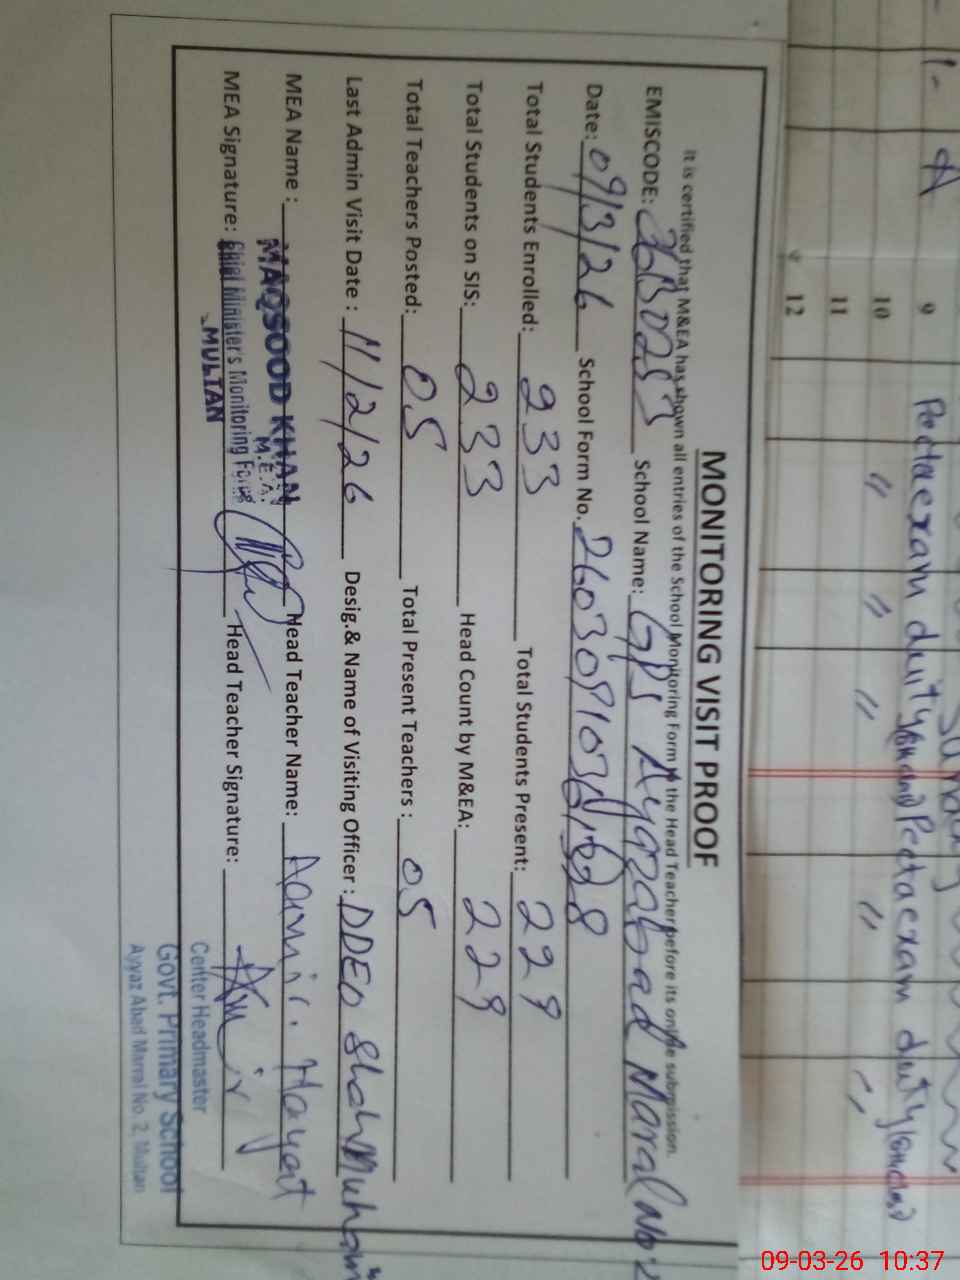 MONITORING VISIT PROOF
It is certified that M&EA has shown all entries of the School Monitoring Form to the Head Teacher before its online submission.
EMISCODE: School Name: GPS Ayazabad Maral No 2
Date: 09/3/26 School Form No.
Total Students Enrolled: 233 Total Students Present: 229
Total Students on SIS: 233 Head Count by M&EA: 229
Total Teachers Posted: 05 Total Present Teachers : 05
Last Admin Visit Date : 11/2/26 Desig.& Name of Visiting Officer : DDEO Shah Muham
MEA Name : MAQSOOD KHAN Head Teacher Name: Aamir Hayat
M.E.A.
MEA Signature: Chief Minister's Monitoring Force Head Teacher Signature: Aamir
MULTAN
Center Headmaster
Govt. Primary School
Ayyaz Abad Marral No. 2, Multan
1- A
9 Pectaexam duity Pectaexam duity
10 " " " " "
11
12
09-03-26 10:37